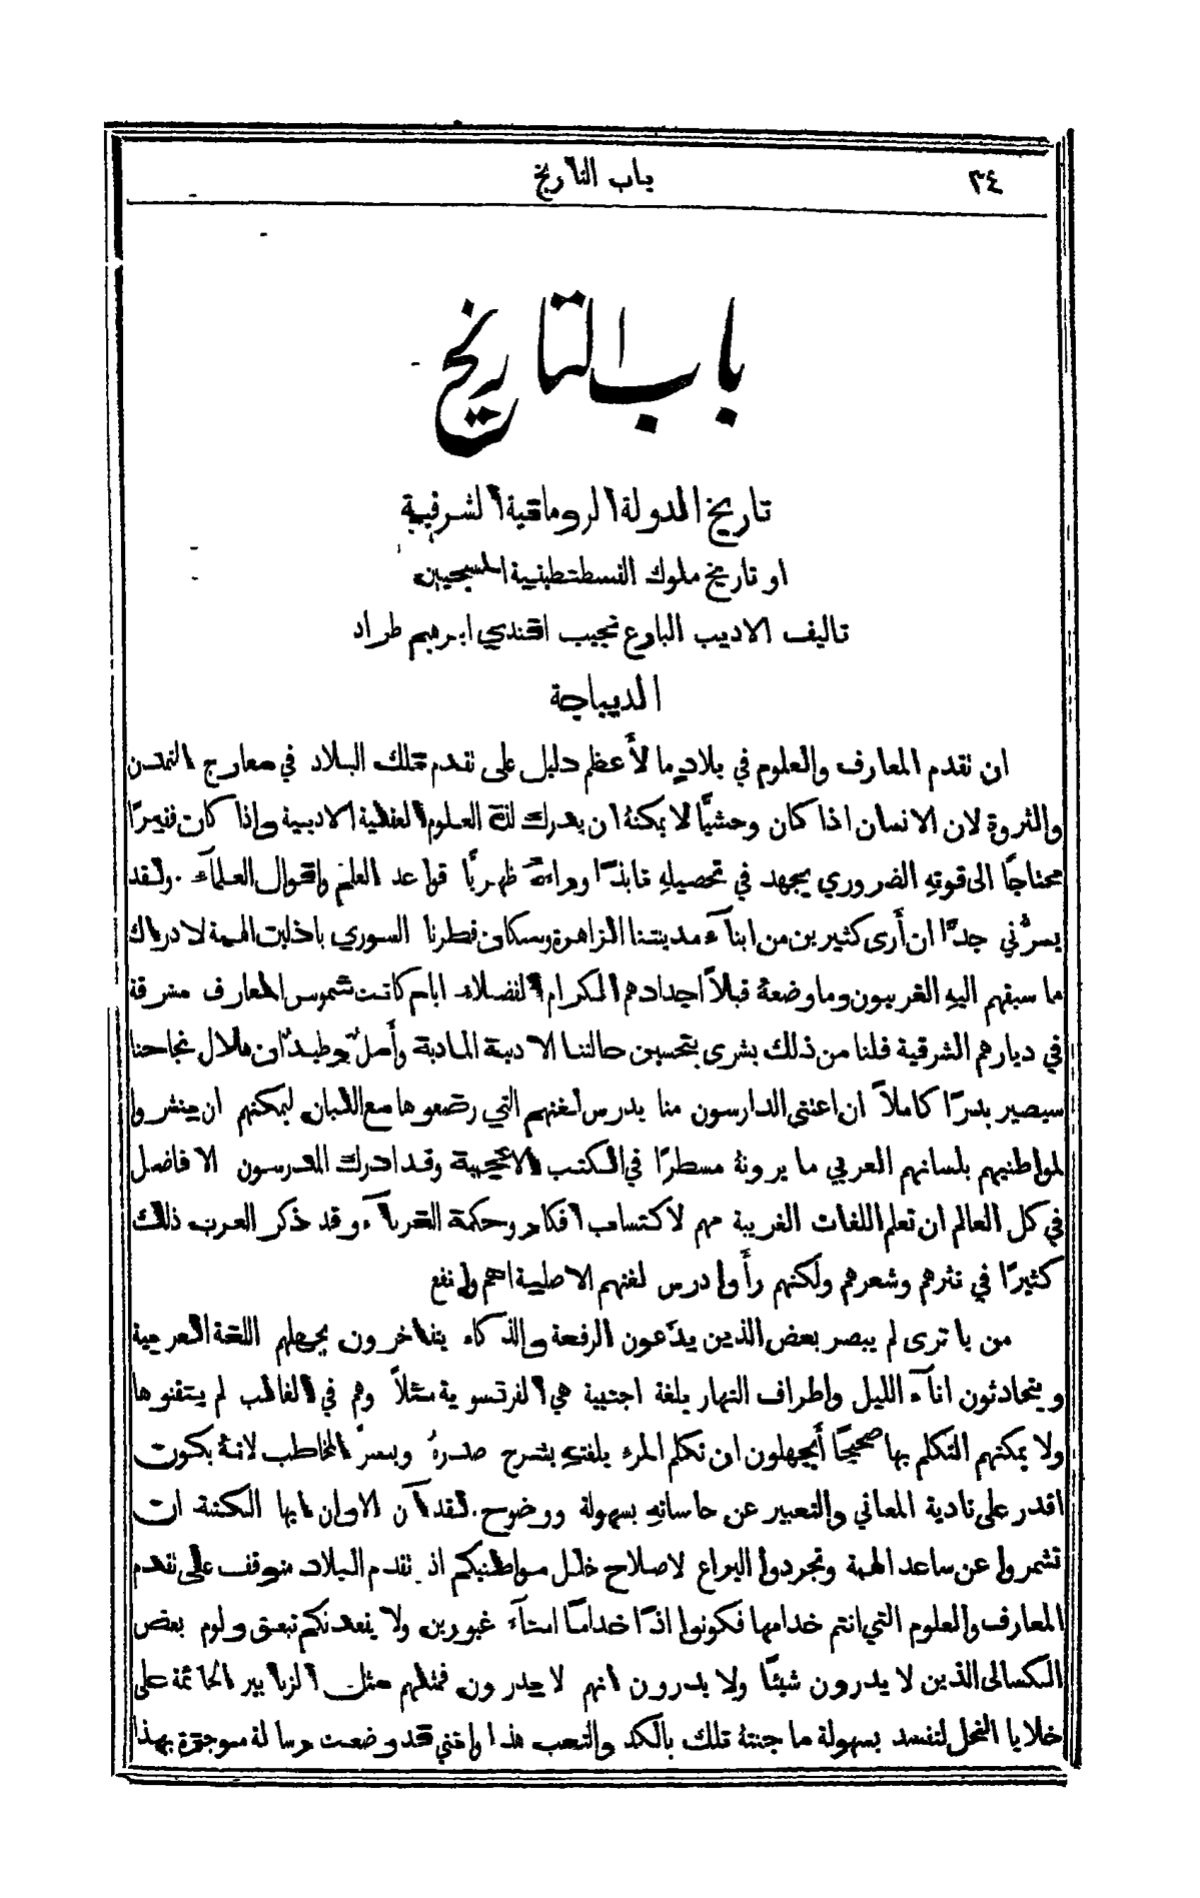 ٣٤
باب التاريخ
باب التاريخ
تاريخ الدولة الرومانية الشرقية
او تاريخ ملوك القسطنطينية المسيحيين
تاليف الاديب البارع نجيب افندي ابرهيم طراد
الديباجة
ان تقدم المعارف والعلوم في بلادٍ ما لأعظم دليل على تقدم تلك البلاد في معارج التمدن
والثروة لان الانسان اذا كان وحشيًّا لا يمكنهُ ان يدرك لذة العلوم العقلية الادبية واذا كان فقيرًا
محتاجًا الى قوتهِ الضروري يجهد في تحصيلهِ نابذًا وراءهُ ظهريًّا قواعد العلم واقوال العلمآء . ولقد
يسرُّني جدًّا ان أرى كثيرين من ابنآء مدينتنا الزاهرة وسكان قطرنا السوري باذلين الهمة لادراك
ما سبقهم اليهِ الغربيون وما وضعهُ قبلاً اجدادهم الكرام الفضلاء ايام كانت شموس المعارف مشرقة
في ديارهم الشرقية فلنا من ذلك بشرى بتحسين حالتنا الادبية المادية وأملٌ وطيدٌ ان هلال نجاحنا
سيصير بدرًا كاملاً ان اعتنى الدارسون منا بدرس لغتهم التي رضعوها مع اللبان ليمكنهم ان ينشروا
لمواطنيهم بلسانهم العربي ما يرونهُ مسطرًا في الكتب الاعجمية وقد ادرك المدرسون الافاضل
في كل العالم ان تعلم اللغات الغريبة مهم لاكتساب افكار وحكمة الغربآء وقد ذكر العرب ذلك
كثيرًا في نثرهم وشعرهم ولكنهم رأَوا درس لغتهم الاصلية اهم وانفع
من يا ترى لم يبصر بعض الذين يدَّعون الرفعة والذكاء يتفاخرون بجهلهم اللغة العربية
ويتحادثون انآء الليل واطراف النهار بلغة اجنبية هي الفرنسوية مثلاً وهم في الغالب لم يتقنوها
ولا يمكنهم التكلم بها صحيحًا أيجهلون ان تكلم المرء بلغتهِ يشرح صدرهُ ويسرُّ المخاطب لانهُ يكون
اقدر على تادية المعاني والتعبير عن حاساتهِ بسهولة ووضوح . لقد آن الاوان ايها الكتبة ان
تشمروا عن ساعد الهمة وتجردوا اليراع لاصلاح خلل مواطنيكم اذ تقدم البلاد متوقف على تقدم
المعارف والعلوم التي انتم خدامها فكونوا اذًا خدامًا امنآء غيورين ولا يقعدنكم تبعق ولوم بعض
الكسالى الذين لا يدرون شيئًا ولا يدرون انهم لا يدرون فمثلهم مثل الزنابير الحائمة على
خلايا النحل لتفسد بسهولة ما جنتهُ تلك بالكد والتعب هذا وانني قد وضعت رسالة موجزة بهذا